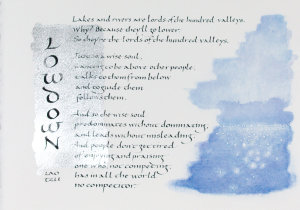 Lakes and rivers are lords of the hundred valleys.
Why? Because they'll go lower.
So they're the lords of the hundred valleys.
Just so, a wise soul,
wanting to be above other people,
talks to them from below
and to guide them
follows them.
And so the wise soul
predominates without dominating,
and leads without misleading.
And people don't get tired
of enjoying and praising
one who, not competing,
has in all the world
no competitor.
LOWDOWN
LAO
TZU